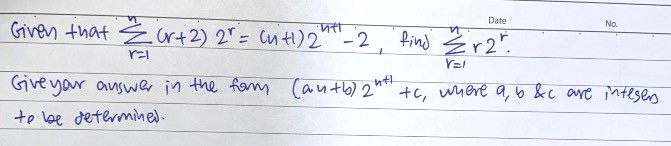 Date No.
Given that $\sum_{r=1}^{n} (r+2) 2^r = (n+1) 2^{n+1} - 2$, find $\sum_{r=1}^{n} r 2^r$.
Give your answer in the form $(an+b) 2^{n+1} + c$, where a, b & c are integers
to be determined.